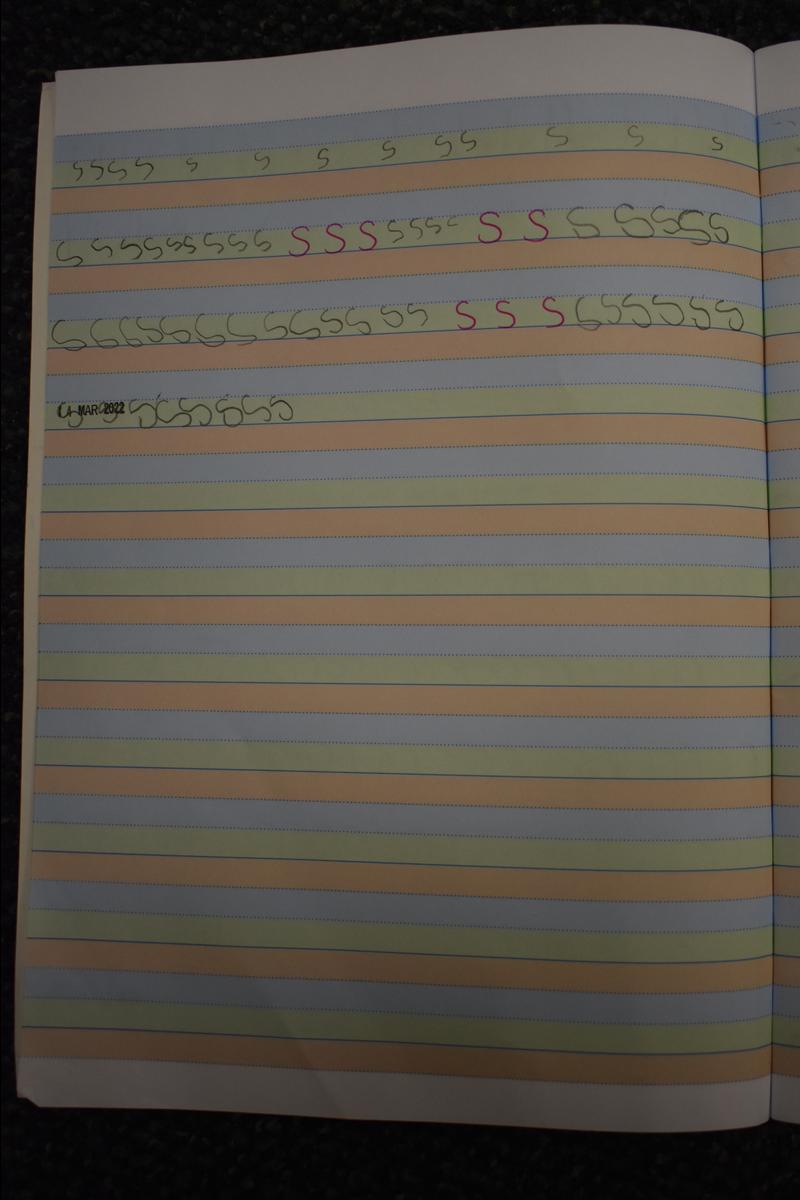 s s s s s s s s s s s s s
s s s s s s s s s S S S s s s s S S s s s s s s
s s s s s s s s s s s s s S S S s s s s s s
MAR 2022 s s s s s s